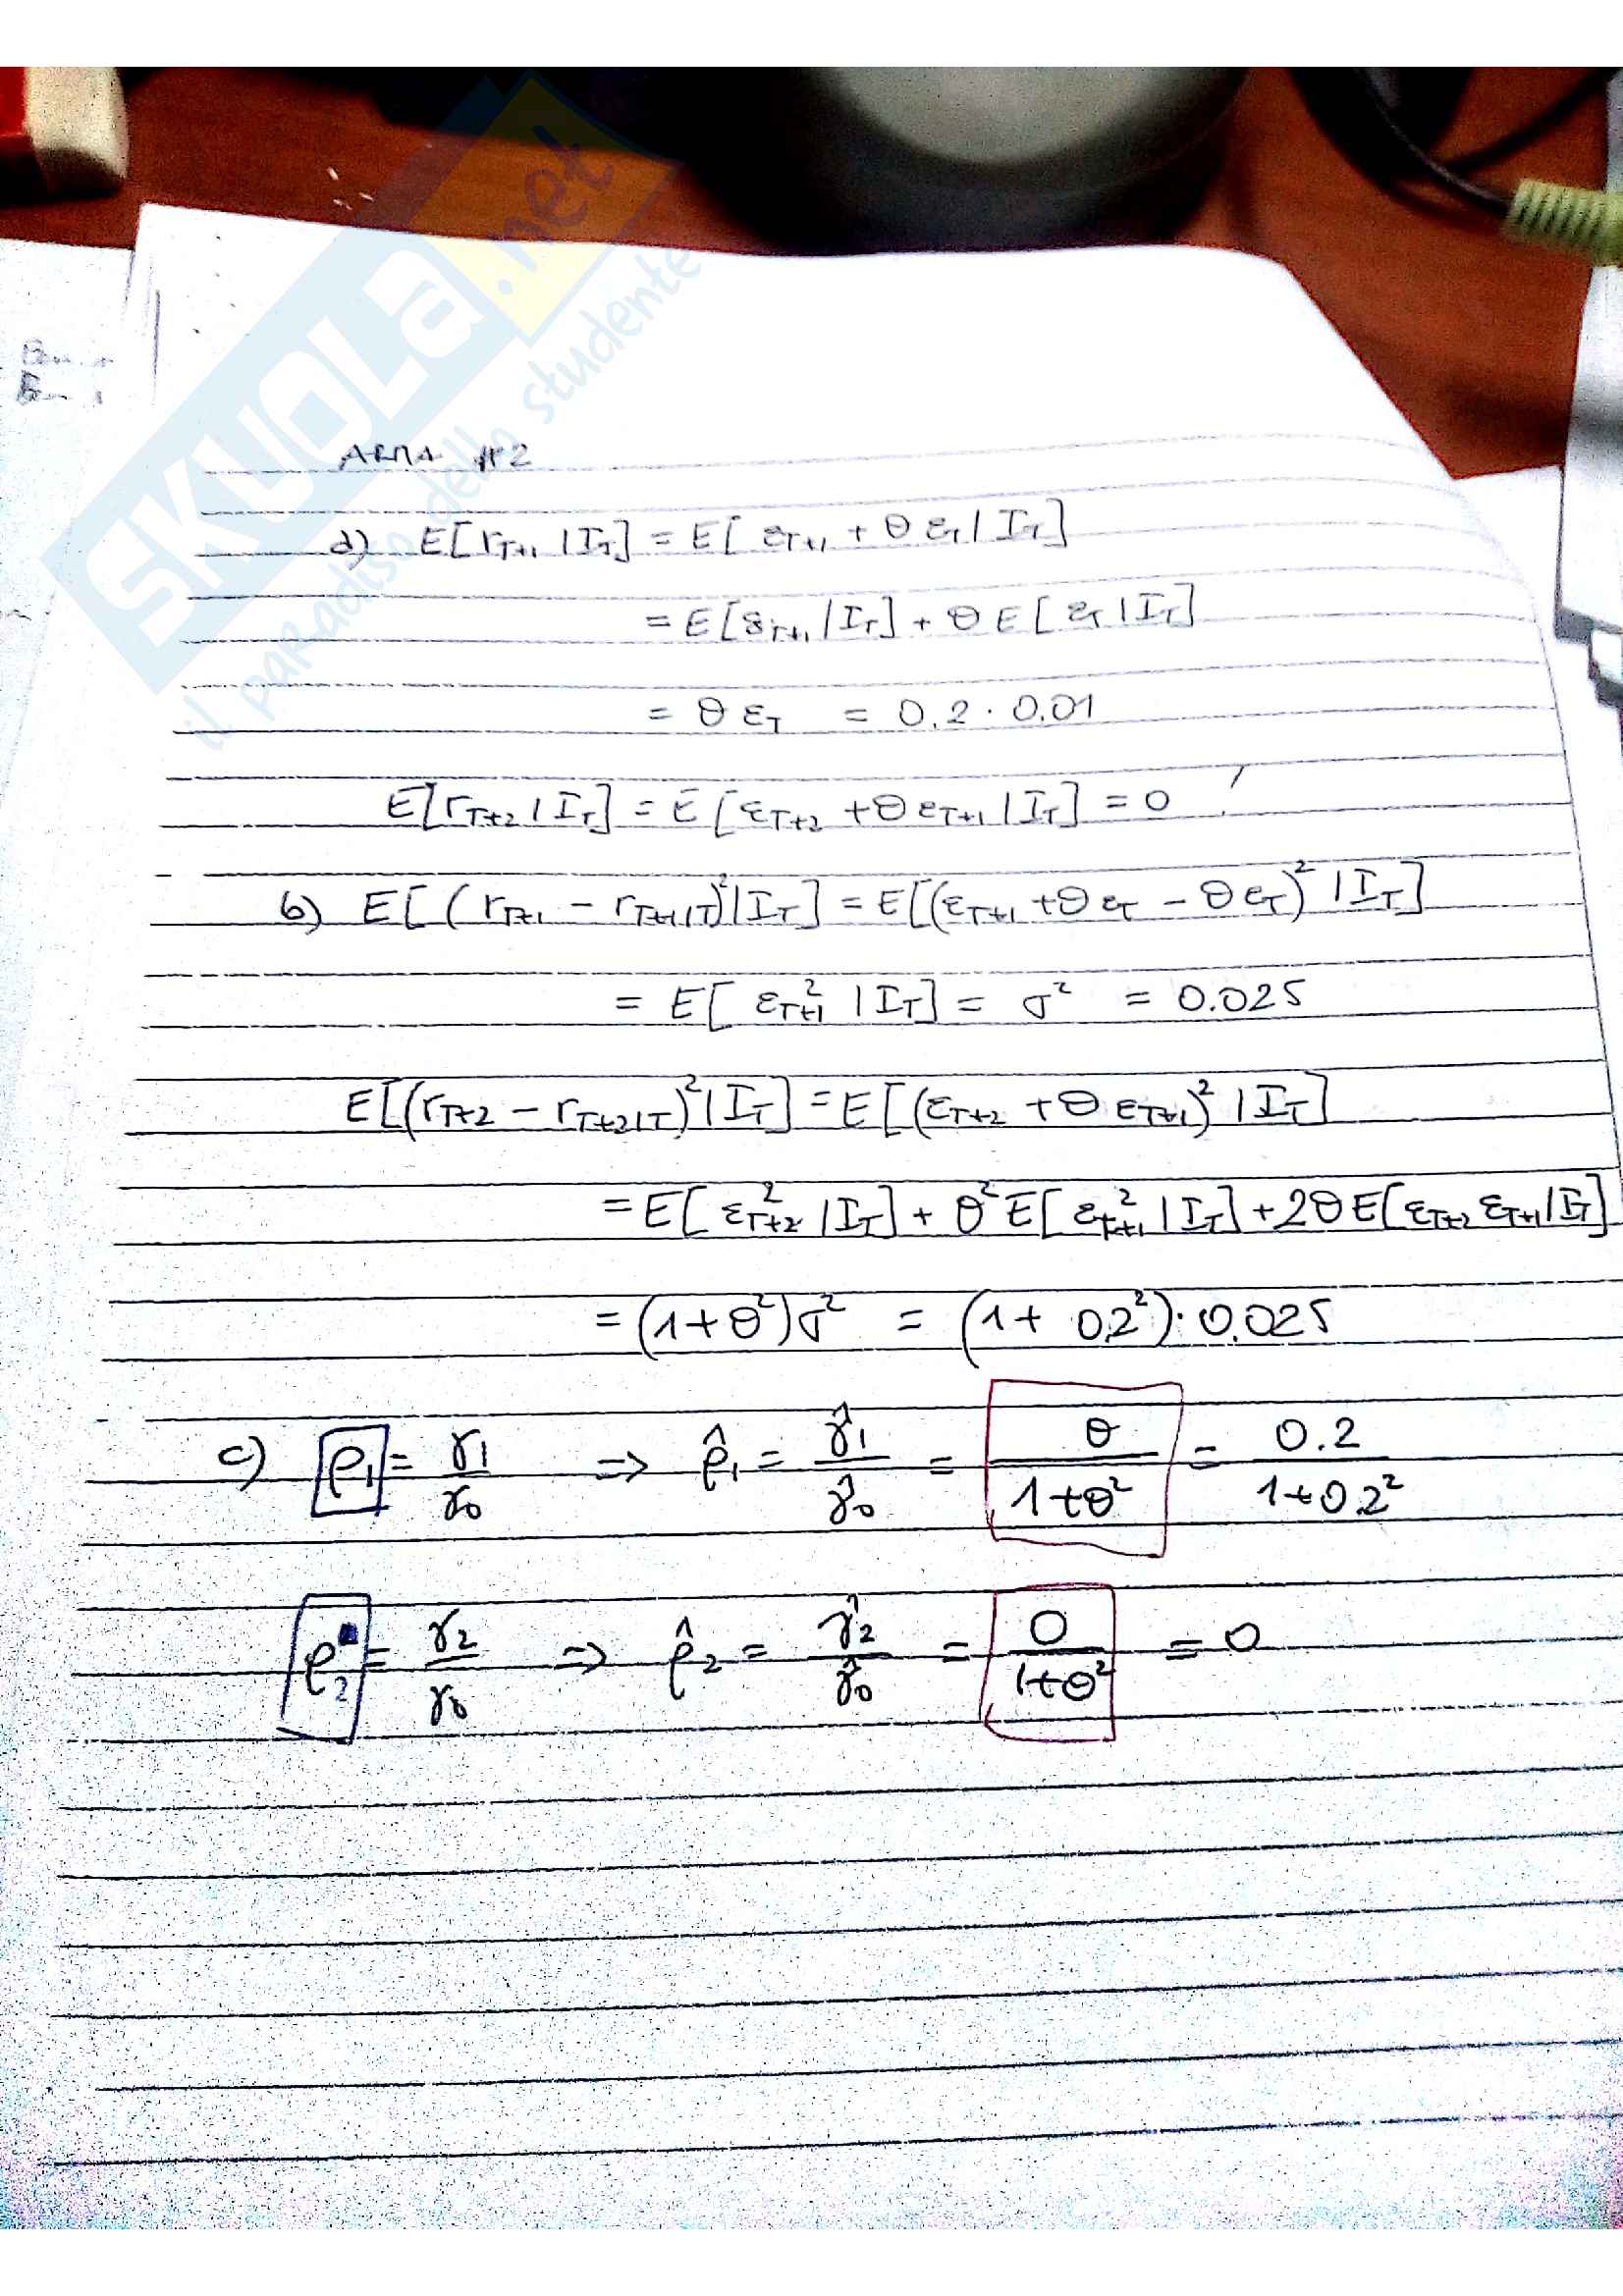 SKUOLA.net
il paradiso dello studente
ARMA #2
a) E[r_{T+1} | I_T] = E[ε_{T+1} + θ ε_T | I_T]
= E[ε_{T+1} | I_T] + θ E[ε_T | I_T]
= θ ε_T = 0.2 · 0.01
E[r_{T+2} | I_T] = E[ε_{T+2} + θ ε_{T+1} | I_T] = 0
b) E[(r_{T+1} - r_{T+1|T})² | I_T] = E[(ε_{T+1} + θ ε_T - θ ε_T)² | I_T]
= E[ε²_{T+1} | I_T] = σ² = 0.025
E[(r_{T+2} - r_{T+2|T})² | I_T] = E[(ε_{T+2} + θ ε_{T+1})² | I_T]
= E[ε²_{T+2} | I_T] + θ² E[ε²_{T+1} | I_T] + 2θ E[ε_{T+2} ε_{T+1} | I_T]
= (1 + θ²)σ² = (1 + 0.2²) · 0.025
c) ρ₁ = γ₁/γ₀ ⇒ ρ̂₁ = γ̂₁/γ̂₀ = θ/(1+θ²) = 0.2/(1+0.2²)
ρ₂ = γ₂/γ₀ ⇒ ρ̂₂ = γ̂₂/γ̂₀ = 0/(1+θ²) = 0